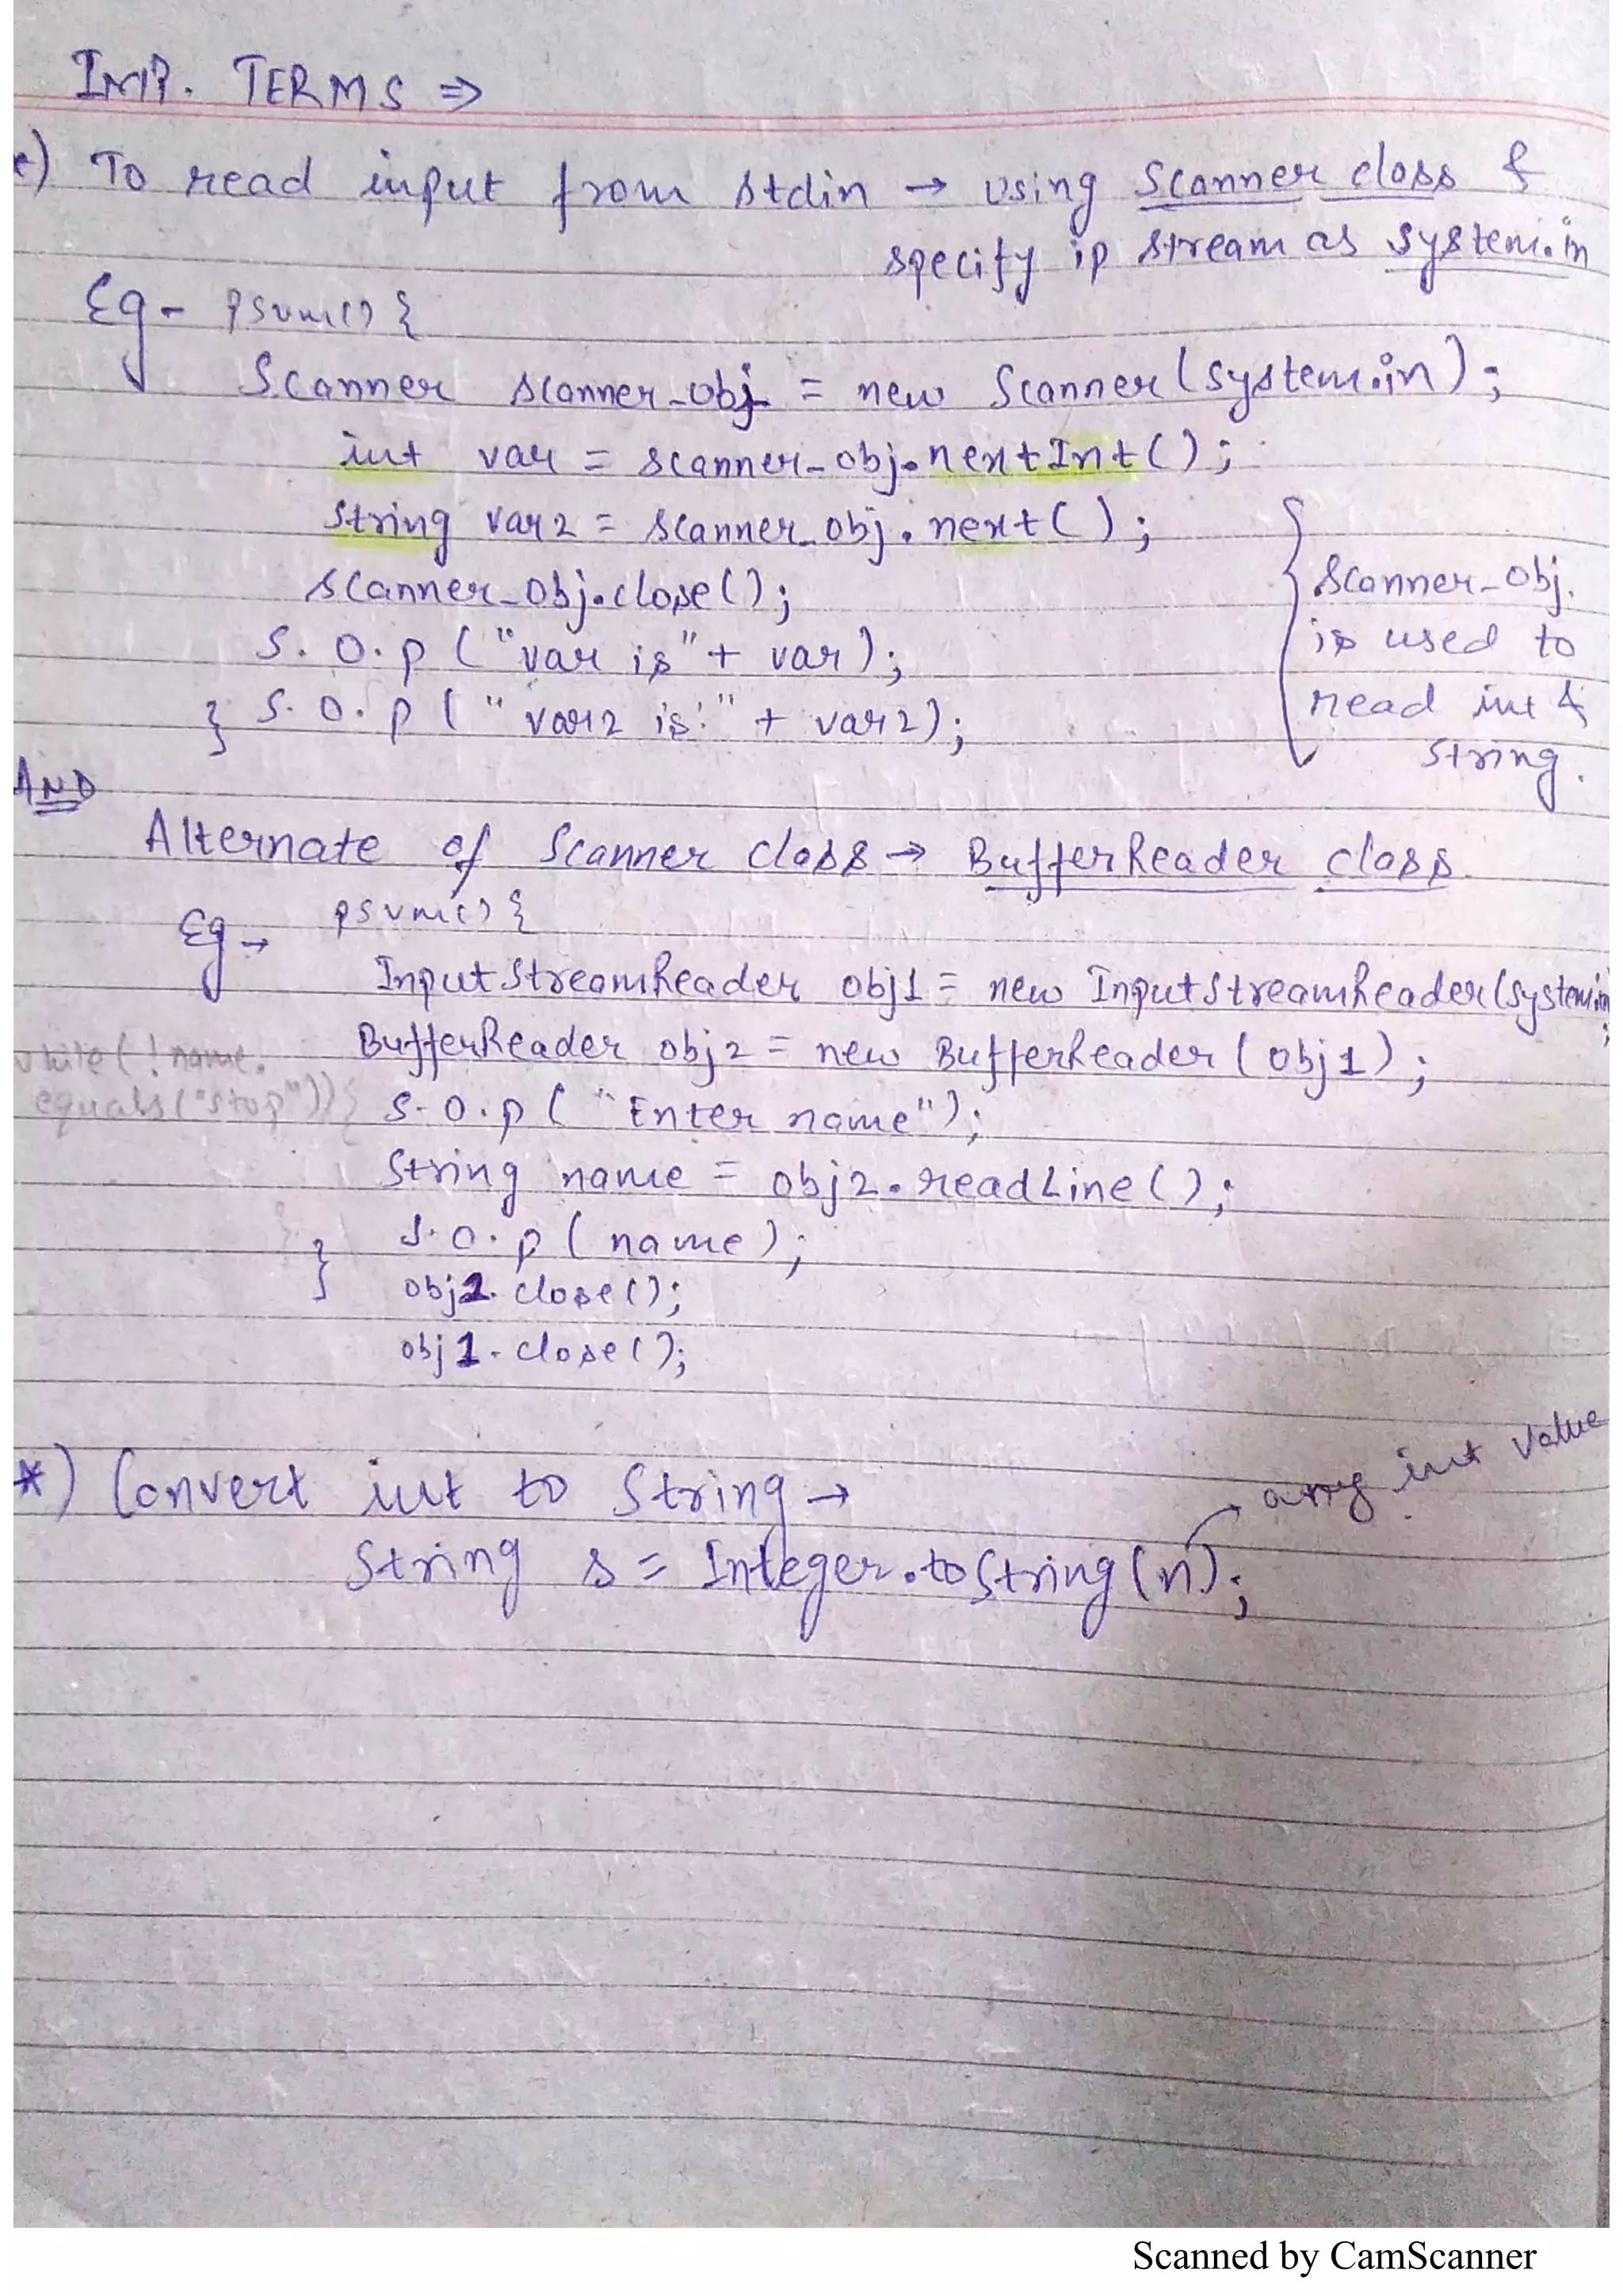 IMP. TERMS ⇒
*) To read input from stdin → using Scanner class &
specify ip stream as system.in
Eg- psvm() {
Scanner scanner_obj = new Scanner (system.in);
int var = scanner_obj.nextInt();
string var2 = scanner_obj.next();
scanner_obj.close();
S.O.p ("var is" + var);
} S.O.p ("var2 is:" + var2);
scanner_obj.
is used to
read int &
string.
AND
Alternate of Scanner class → BufferReader class.
Eg → psvm() {
InputStreamReader obj1 = new InputStreamReader(system.in)
;
BufferReader obj2 = new BufferReader (obj1);
while(!name.
equals("stop")){
S.O.p ("Enter name");
String name = obj2.readLine();
} S.O.p (name);
obj2.close();
obj1.close();
*) Convert int to String →
any int value
String s = Integer.toString(n);
Scanned by CamScanner